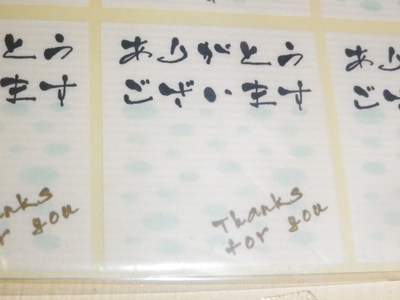 とう
ます
anks
r you
ありがとう
ございます
Thanks
for you
あり
ござ